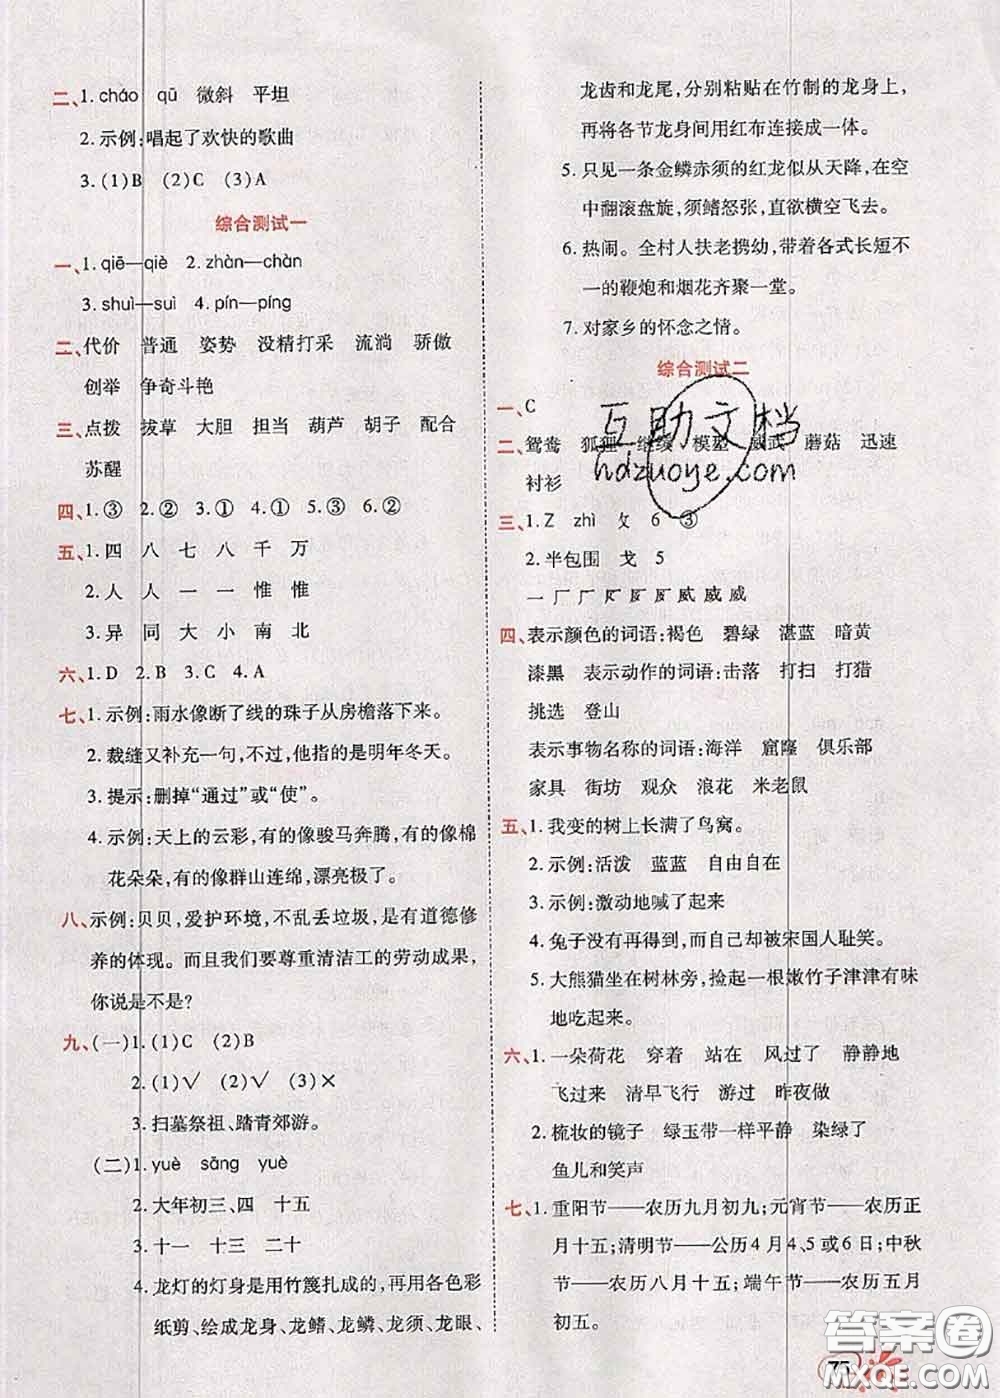 二、1. cháo　qū　微斜　平坦
2. 示例:唱起了欢快的歌曲
3. (1)B　(2)C　(3)A
综合测试一
一、1. qiē—qiè　2. zhàn—chàn
3. shuì—suì　4. pín—píng
二、代价　普通　姿势　没精打采　流淌　骄傲
创举　争奇斗艳
三、点拨　拔草　大胆　担当　葫芦　胡子　配合
苏醒
四、1. ③　2. ②　3. ①　4. ①　5. ③　6. ②
五、1. 四　八　七　八　千　万
2. 人　人　一　一　惟　惟
3. 异　同　大　小　南　北
六、1. D　2. B　3. C　4. A
七、1. 示例:雨水像断了线的珠子从房檐落下来。
2. 裁缝又补充一句,不过,他指的是明年冬天。
3. 提示:删掉“通过”或“使”。
4. 示例:天上的云彩,有的像骏马奔腾,有的像棉
花朵朵,有的像群山连绵,漂亮极了。
八、示例:贝贝,爱护环境,不乱丢垃圾,是有道德修
养的体现。而且我们要尊重清洁工的劳动成果,
你说是不是?
九、(一)1. (1)C　(2)B
2. (1)√　(2)√　(3)×
3. 扫墓祭祖、踏青郊游。
(二)1. yuè　sāng　yuè
2. 大年初三、四　十五
3. 十一　十三　二十
4. 龙灯的灯身是用竹篾扎成的,再用各色彩
纸剪、绘成龙身、龙鳍、龙鳞、龙须、龙眼、
龙齿和龙尾,分别粘贴在竹制的龙身上,
再将各节龙身间用红布连接成一体。
5. 只见一条金鳞赤须的红龙似从天降,在空
中翻滚盘旋,须鳍怒张,直欲横空飞去。
6. 热闹。全村人扶老携幼,带着各式长短不
一的鞭炮和烟花齐聚一堂。
7. 对家乡的怀念之情。
综合测试二
一、C
二、鸳鸯　狐狸　继续　模型　威武　蘑菇　迅速
衬衫
三、1. Z　zhì　攵　6　③
2. 半包围　戈　5
四、表示颜色的词语:褐色　碧绿　湛蓝　暗黄
漆黑　表示动作的词语:击落　打扫　打猎
挑选　登山
表示事物名称的词语:海洋　窟窿　俱乐部
家具　街坊　观众　浪花　米老鼠
五、1. 我变的树上长满了鸟窝。
2. 示例:活泼　蓝蓝　自由自在
3. 示例:激动地喊了起来
4. 兔子没有再得到,而自己却被宋国人耻笑。
5. 大熊猫坐在树林旁,捡起一根嫩竹子津津有味
地吃起来。
六、1. 一朵荷花　穿着　站在　风过了　静静地
飞过来　清早飞行　游过　昨夜做
2. 梳妆的镜子　绿玉带一样平静　染绿了
鱼儿和笑声
七、1. 重阳节——农历九月初九;元宵节——农历正
月十五;清明节——公历4月4、5或6日;中秋
节——农历八月十五;端午节——农历五月
初五。
互助文档
hdzuoye.com
75
答案圈
MXQE.COM